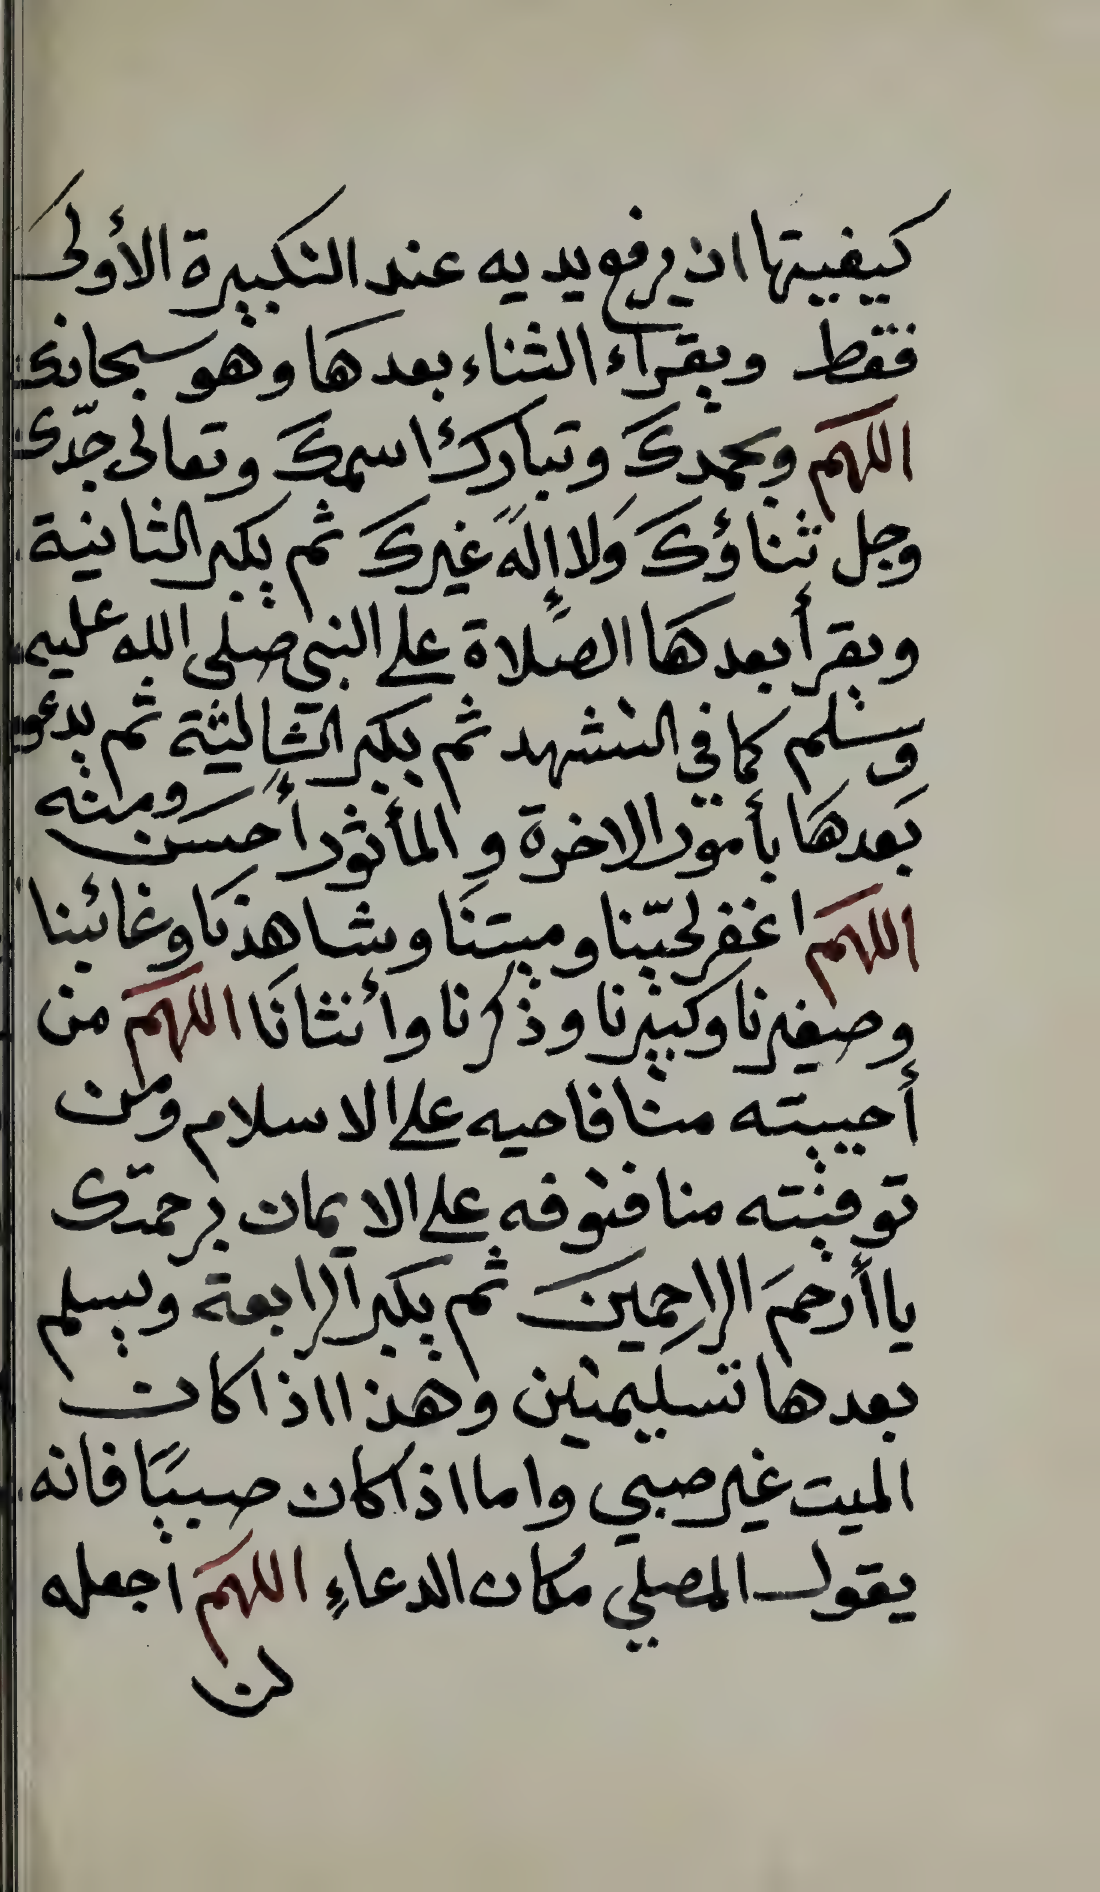 كيفيتها ان يرفع يديه عند التكبيرة الأولى
فقط ويقراء الثناء بعدها وهو سبحانك
اللهم وبحمدك وتبارك اسمك وتعالى جدّك
وجل ثناؤك ولا إله غيرك ثم يكبر الثانية
ويقرأ بعدها الصلاة على النبي صلى الله عليه
وسلم كما في التشهد ثم يكبر الثالثة ثم يدعو
بعدها بأمور الاخرة والمأثور أحسن ومنه
اللهم اغفر لحيّنا وميتنا وشاهدنا وغائبنا
وصغيرنا وكبيرنا وذكرنا وأنثانا اللهم من
أحييته منا فاحيه على الاسلام ومن
توفيته منا فتوفه على الايمان برحمتك
يا أرحم الراحمين ثم يكبر الرابعة ويسلم
بعدها تسليمتين وهذا اذا كان
الميت غير صبي واما اذا كان صبيًا فانه
يقول المصلي مكان الدعاءِ اللهم اجعله
لنا